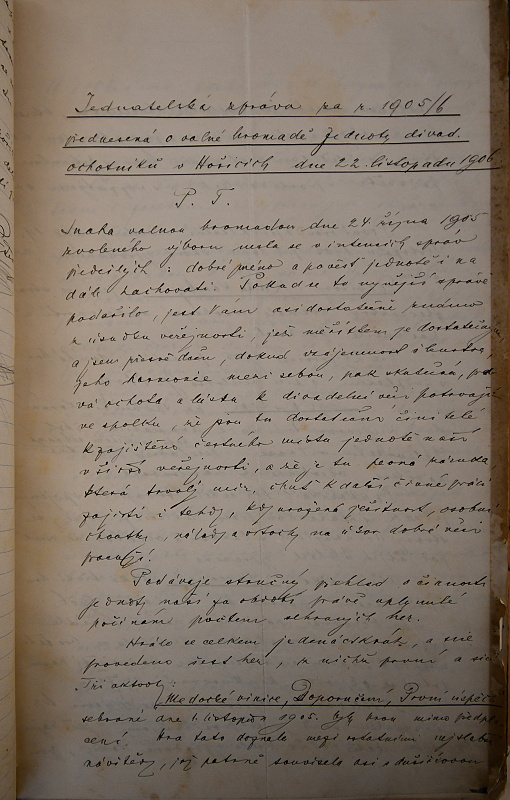 Jednatelská zpráva za r. 1905/6
přednesená o valné hromadě Jednoty divad.
ochotníků v Hořicích dne 22. listopadu 1906
P. T.
Snaha valnou hromadou dne 24. října 1905
zvoleného výboru nesla se v intencích správ
předešlých: dobré jméno a pověst jednotě i na
dále zachovati. Pokud se to nynější správě
podařilo, jest Vám asi dostatečně známo
z úsudku veřejnosti, jež měřítkem je dostatečným
a jsem přesvědčen, dokud vzájemnost
jeho harmonie mezi sebou, pak skutečná,
vá ochota a láska k divadelní věci potrvají
ve spolku, že jsou tu dostateční činitelé
k zajištění čestného místa jednotě naší
v širší veřejnosti, a že je tu pevná záruka,
která trvalý mír, chuť k další činné práci
zajistí i tehdy, kdy uražená ješitnost, osobní
choutky, nálady a vrtochy na úkor dobré věci
pracují.
Podávaje stručný přehled o činnosti
jednoty naší za období právě uplynulé
počínám počtem sehraných her.
Hrálo se celkem jedenáctkrát, a sice
provedeno šest her, z nichž první a sice
Tři aktovky:
Medocké vinice, Doporučení, První úspěch
sehrané dne 1. listopadu 1905. byly hrou mimo předpla-
cení. Hra tato doznala mezi ostatními nejslabší
návštěvy, jež patrně souvisela asi s dušičkovou